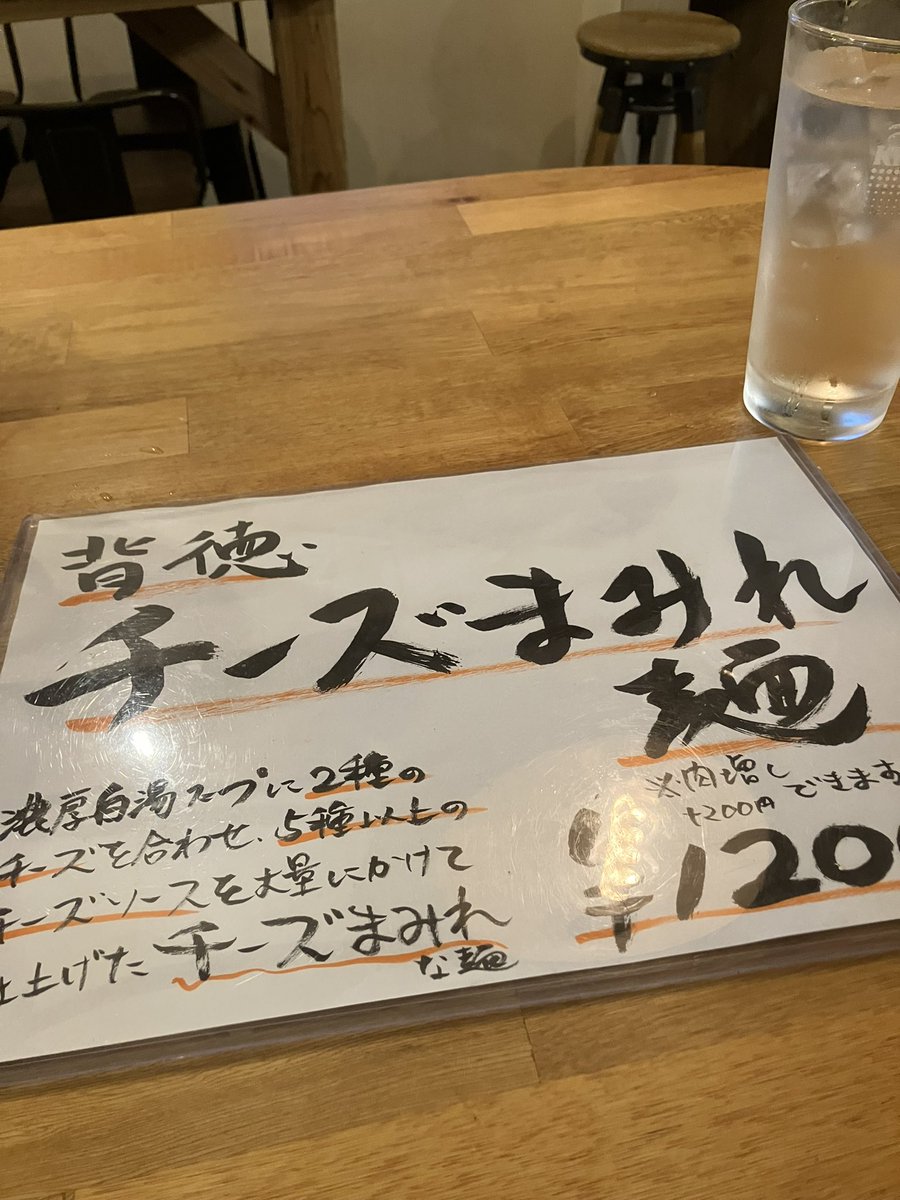 背徳
チーズまみれ
麺
濃厚白湯スープに2種の
チーズを合わせ、5種以上の
チーズソースを大量にかけて
仕上げた チーズまみれ
な麺
※肉増し
できます
+200円
¥1200